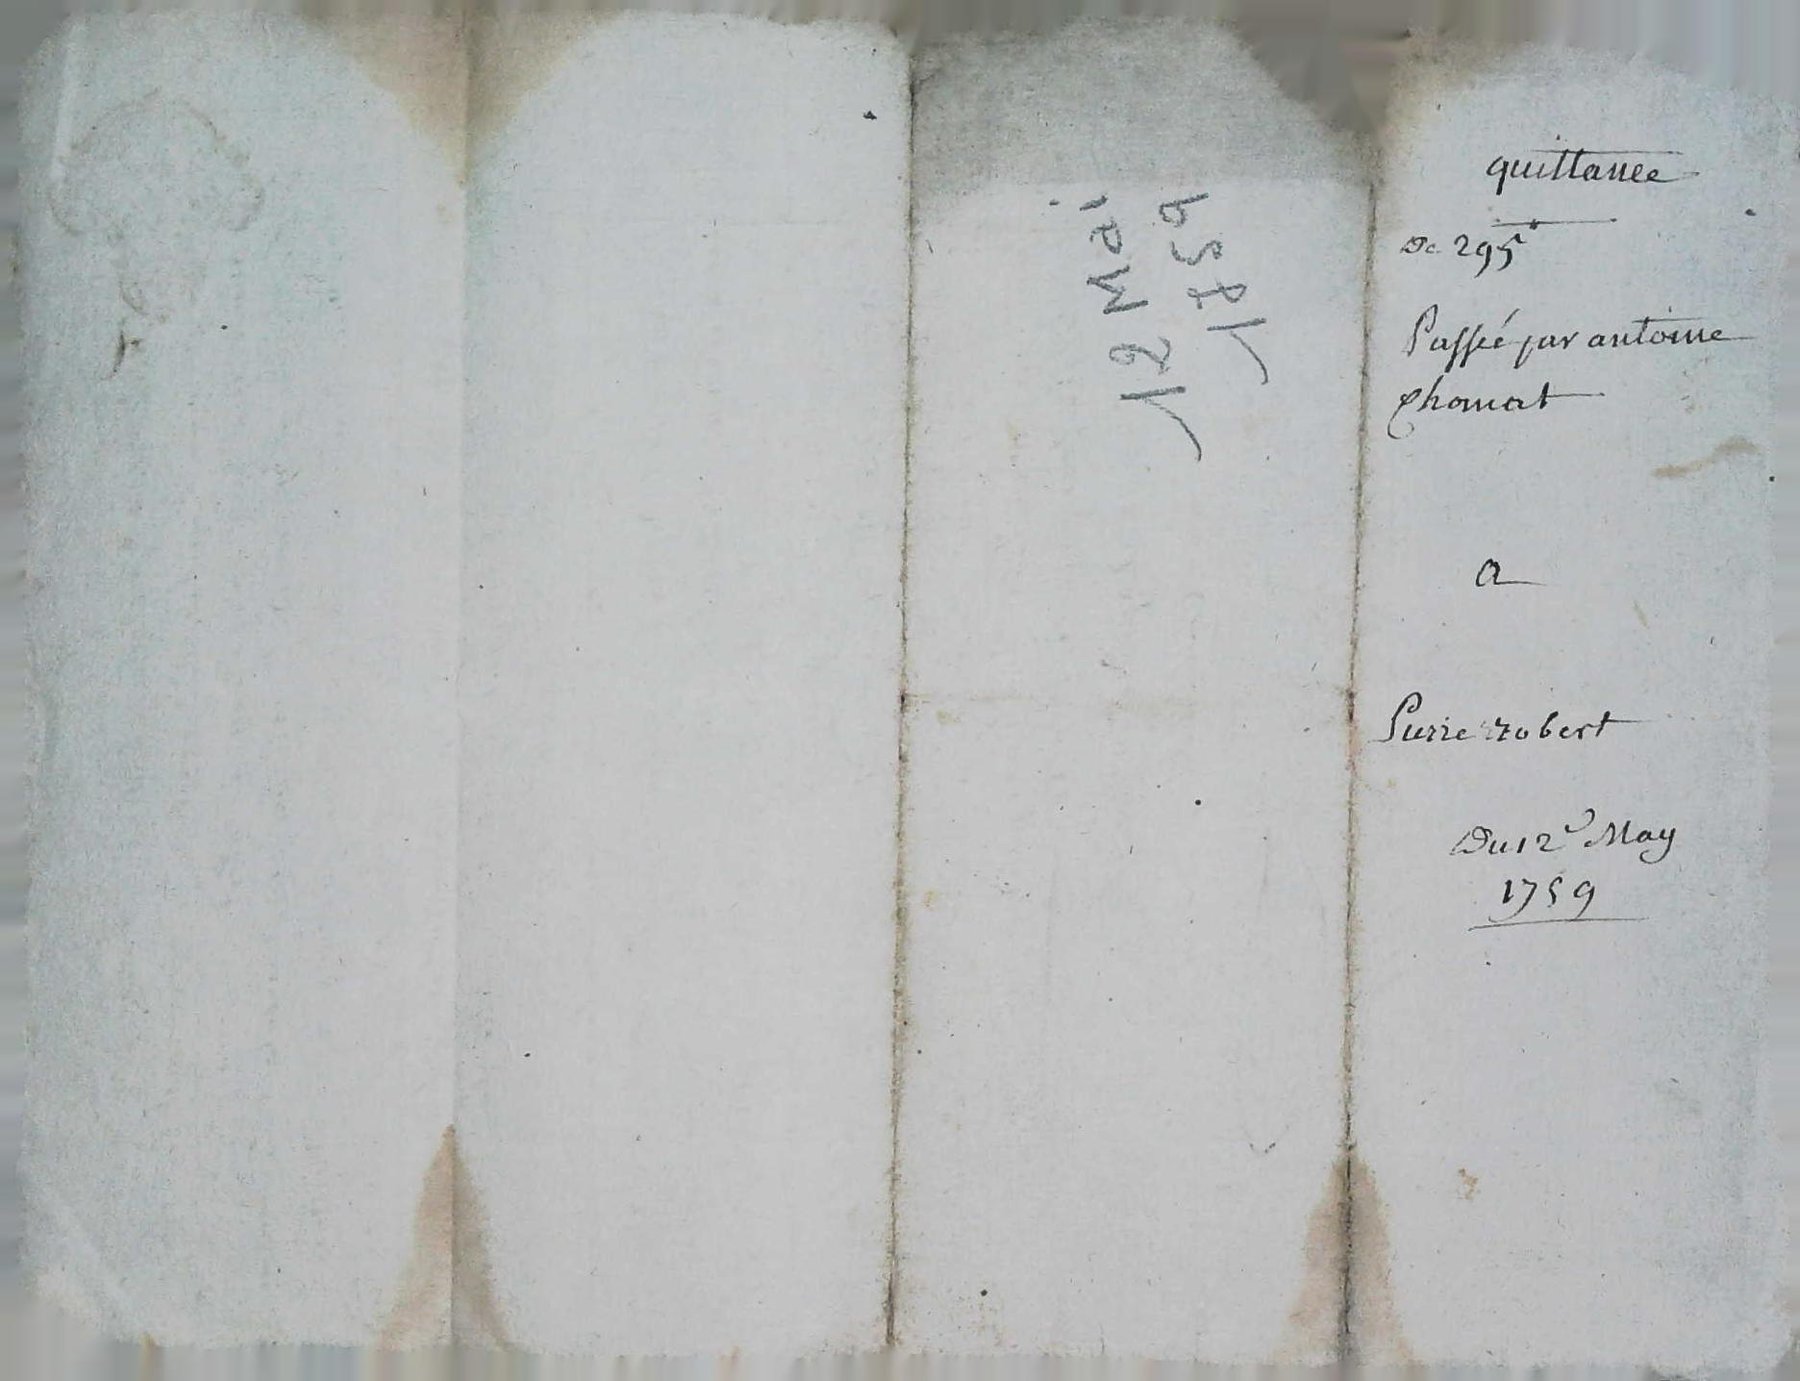 12 Mai
1759
quittance
De 295#
Passée par antoine
Chomat
a
Pierre robert
Du 12e May
1759